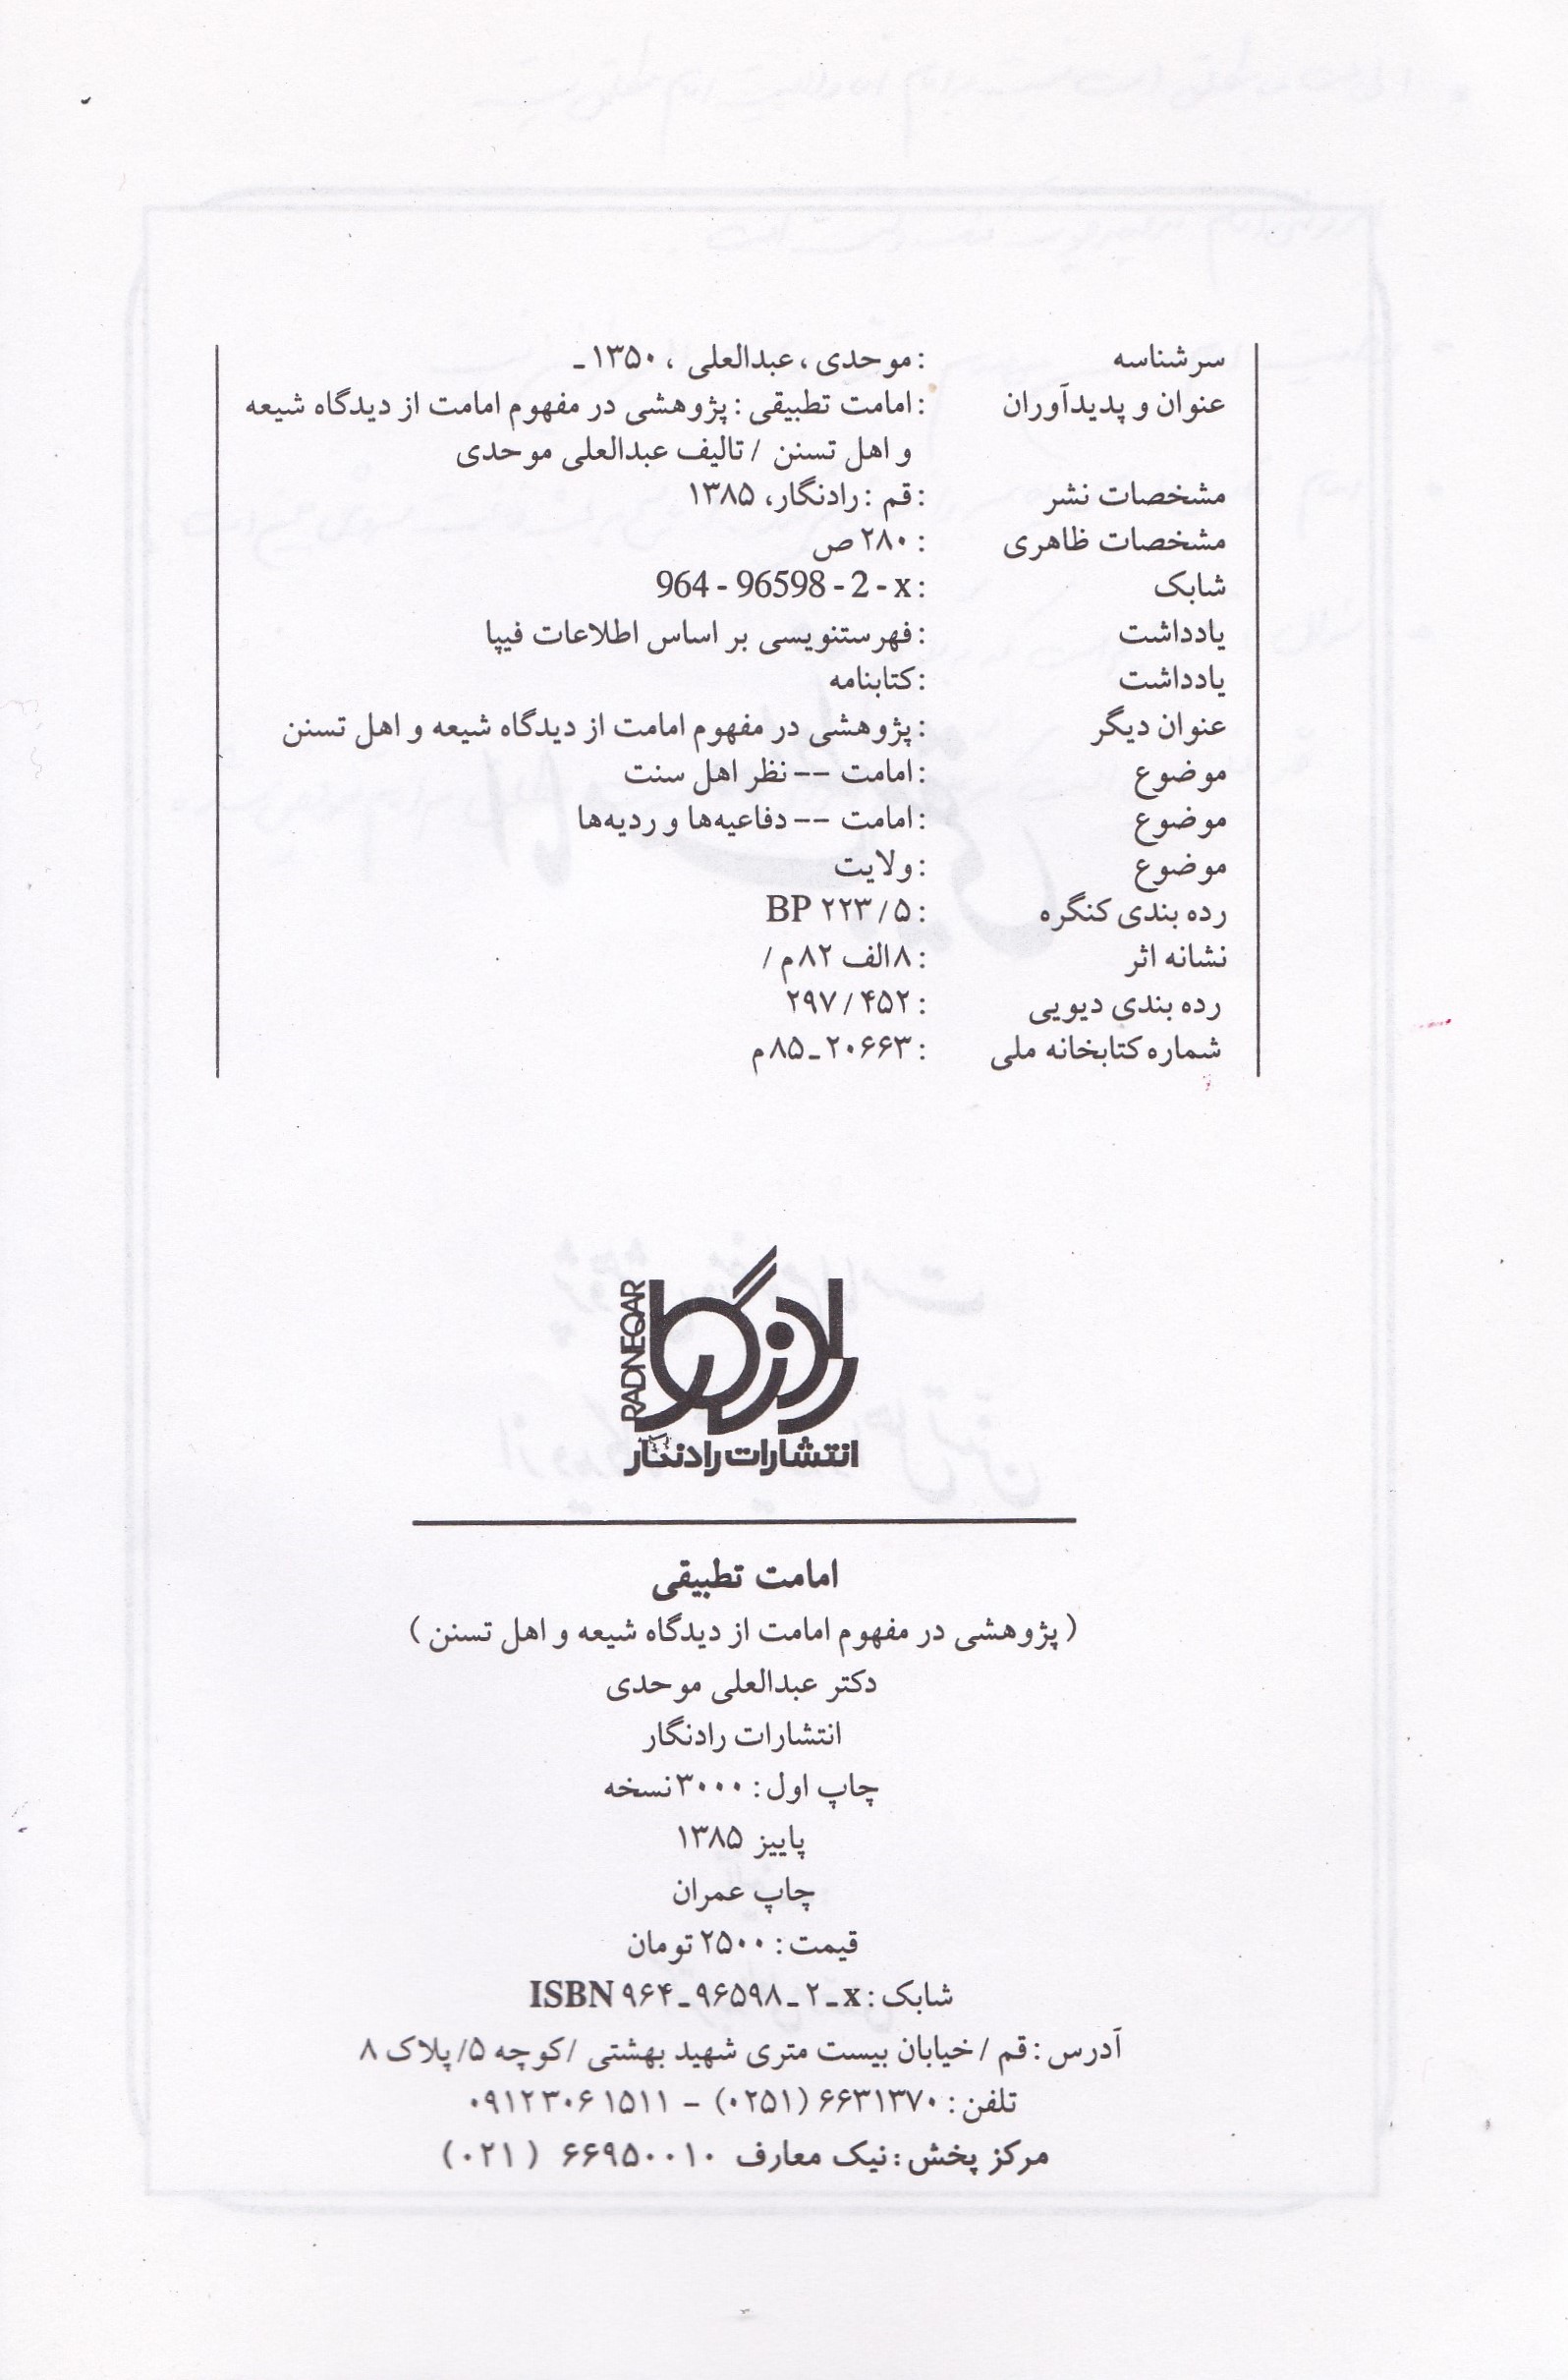 سرشناسه : موحدی، عبدالعلی ، ۱۳۵۰ ـ
عنوان و پدیدآوران : امامت تطبیقی : پژوهشی در مفهوم امامت از دیدگاه شیعه
و اهل تسنن / تالیف عبدالعلی موحدی
مشخصات نشر : قم : رادنگار، ۱۳۸۵
مشخصات ظاهری : ۲۸۰ ص
شابک : 964 - 96598 - 2 - x
یادداشت : فهرستنویسی بر اساس اطلاعات فیپا
یادداشت : کتابنامه
عنوان دیگر : پژوهشی در مفهوم امامت از دیدگاه شیعه و اهل تسنن
موضوع : امامت -- نظر اهل سنت
موضوع : امامت -- دفاعیه‌ها و ردیه‌ها
موضوع : ولایت
رده بندی کنگره : BP ۲۲۳/۵
نشانه اثر : ۸الف ۸۲م /
رده بندی دیویی : ۲۹۷/۴۵۲
شماره کتابخانه ملی : ۲۰۶۶۳ـ۸۵م
رادنگار
RADNEQAR
انتشارات رادنگار
امامت تطبیقی
( پژوهشی در مفهوم امامت از دیدگاه شیعه و اهل تسنن )
دکتر عبدالعلی موحدی
انتشارات رادنگار
چاپ اول : ۳۰۰۰ نسخه
پاییز ۱۳۸۵
چاپ عمران
قیمت : ۲۵۰۰ تومان
شابک : ISBN ۹۶۴ـ۹۶۵۹۸ـ۲ـx
آدرس : قم / خیابان بیست متری شهید بهشتی /کوچه ۵/ پلاک ۸
تلفن : ۶۶۳۱۳۷۰ (۰۲۵۱) - ۰۹۱۲۳۰۶۱۵۱۱
مرکز پخش : نیک معارف ۶۶۹۵۰۰۱۰ (۰۲۱)